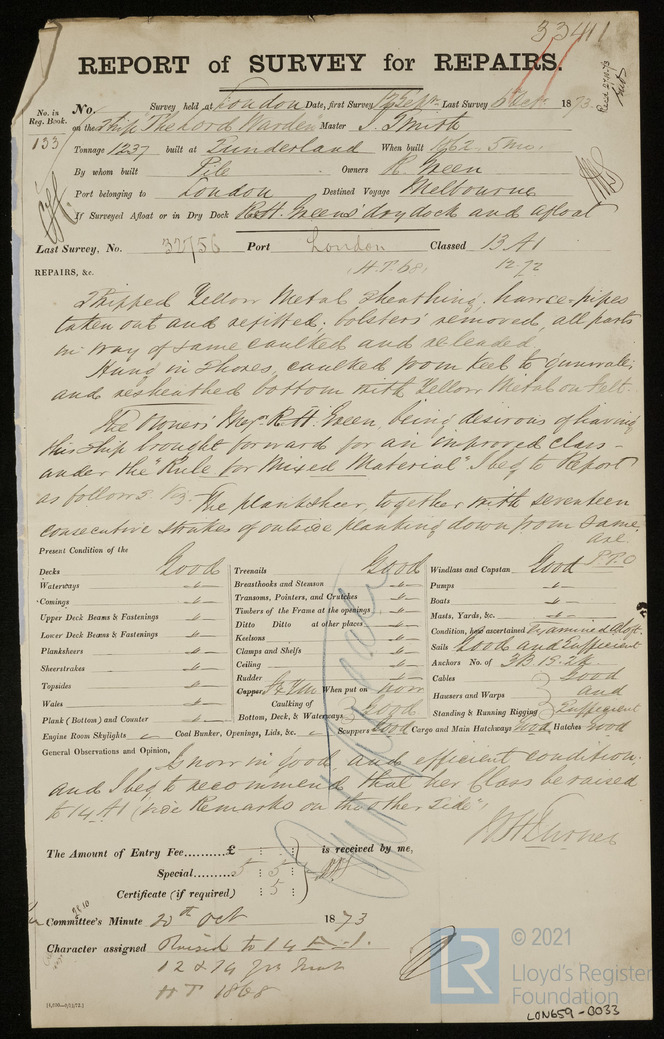 33411
REPORT of SURVEY for REPAIRS.
No. in Reg. Book.
133
No. Survey held at London Date, first Survey 12 Sept. Last Survey 187
on the Ship "The Lord Warden" Master J. Smith
Tonnage 1237 built at Sunderland When built 1862. 5 mo.
By whom built Pile Owners R. Green
Port belonging to London Destined Voyage Melbourne
If Surveyed Afloat or in Dry Dock R & H. Greens' dry dock and afloat
Last Survey, No. 32756 Port London Classed 13 A1
H.T. 68. 12.72
REPAIRS, &c.
Stripped Yellow Metal Sheathing, hawse-pipes
taken out and refitted; bolsters removed, all parts
in way of same caulked and releaded.
Hung in Shores, caulked from Keel to gunwale;
and resheathed bottom with Yellow Metal on felt.
The Owners Messrs. R & H. Green, being desirous of having
this Ship brought forward for an improved class
under the "Rule for Mixed Material" I beg to Report
as follows Viz. The planksheer, together with seventeen
consecutive strakes of outside planking down from same,
are
P.T.O
Present Condition of the
Decks Good Treenails Good Windlass and Capstan Good
Waterways " Breasthooks and Stemson " Pumps "
Comings " Transoms, Pointers, and Crutches " Boats "
Upper Deck Beams & Fastenings " Timbers of the Frame at the openings " Masts, Yards, &c. "
Lower Deck Beams & Fastenings " Ditto Ditto at other places " Condition, how ascertained Examined Aloft.
Planksheers " Keelsons " Sails Good and Sufficient
Sheerstrakes " Clamps and Shelfs " Anchors No. of 3B. 1S. 2K.
Topsides " Ceiling " Cables Good
Wales " Rudder " Hausers and Warps and
Plank (Bottom) and Counter " Copper When put on now Standing & Running Rigging Sufficient
Caulking of Bottom, Deck, & Waterways Good
Engine Room Skylights Coal Bunker, Openings, Lids, &c. Scuppers Good Cargo and Main Hatchways Good Hatches Good
General Observations and Opinion, Is now in good and efficient condition,
and I beg to recommend that her Class be raised
to 14 A1 (vide Remarks on the other side")
The Amount of Entry Fee.........£ : : is received by me,
Special......... 5 : 5 :
Certificate (if required) : 5 :
Committee's Minute 20th Oct 1873
Character assigned Raised to 14 A.1.
H T 1868
[4,500—9/12/72]
LR
© 2021
Lloyd's Register
Foundation
LON659-0033